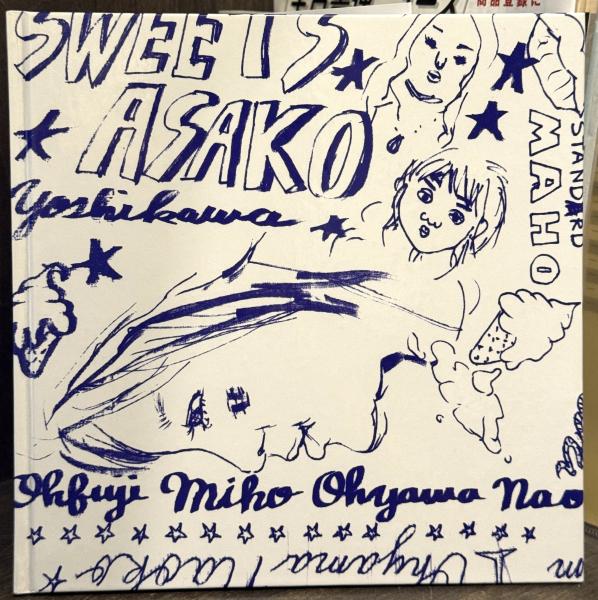 SWEETS
ASAKO
Yoshikawa
STANDARD
MAHO
Ohfuji Miho Ohyama Nao
Ohyama Naoko
商品登録に